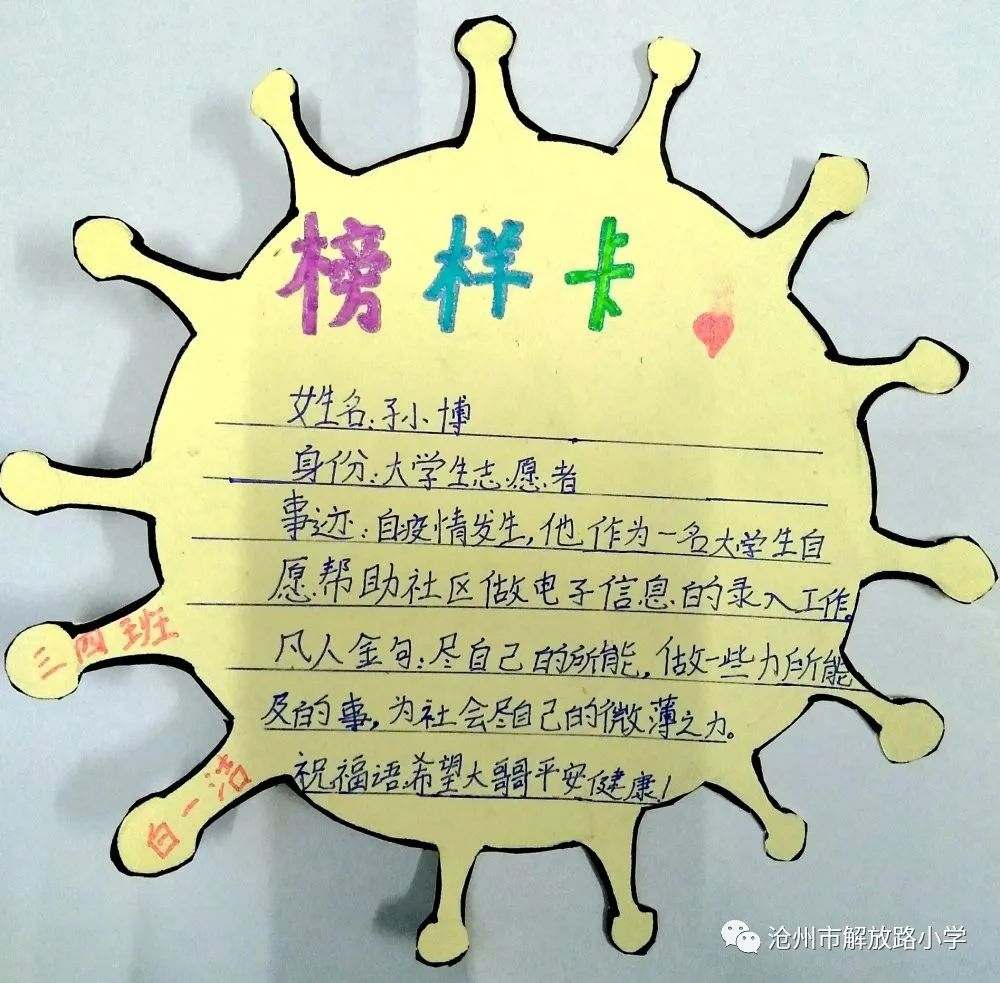 榜样卡
姓名:孙小博
身份:大学生志愿者
事迹:自疫情发生,他作为一名大学生自
愿帮助社区做电子信息的录入工作。
凡人金句:尽自己的所能,做一些力所能
及的事,为社会尽自己的微薄之力。
祝福语希望大哥哥平安健康!
三四班
白一浩
沧州市解放路小学